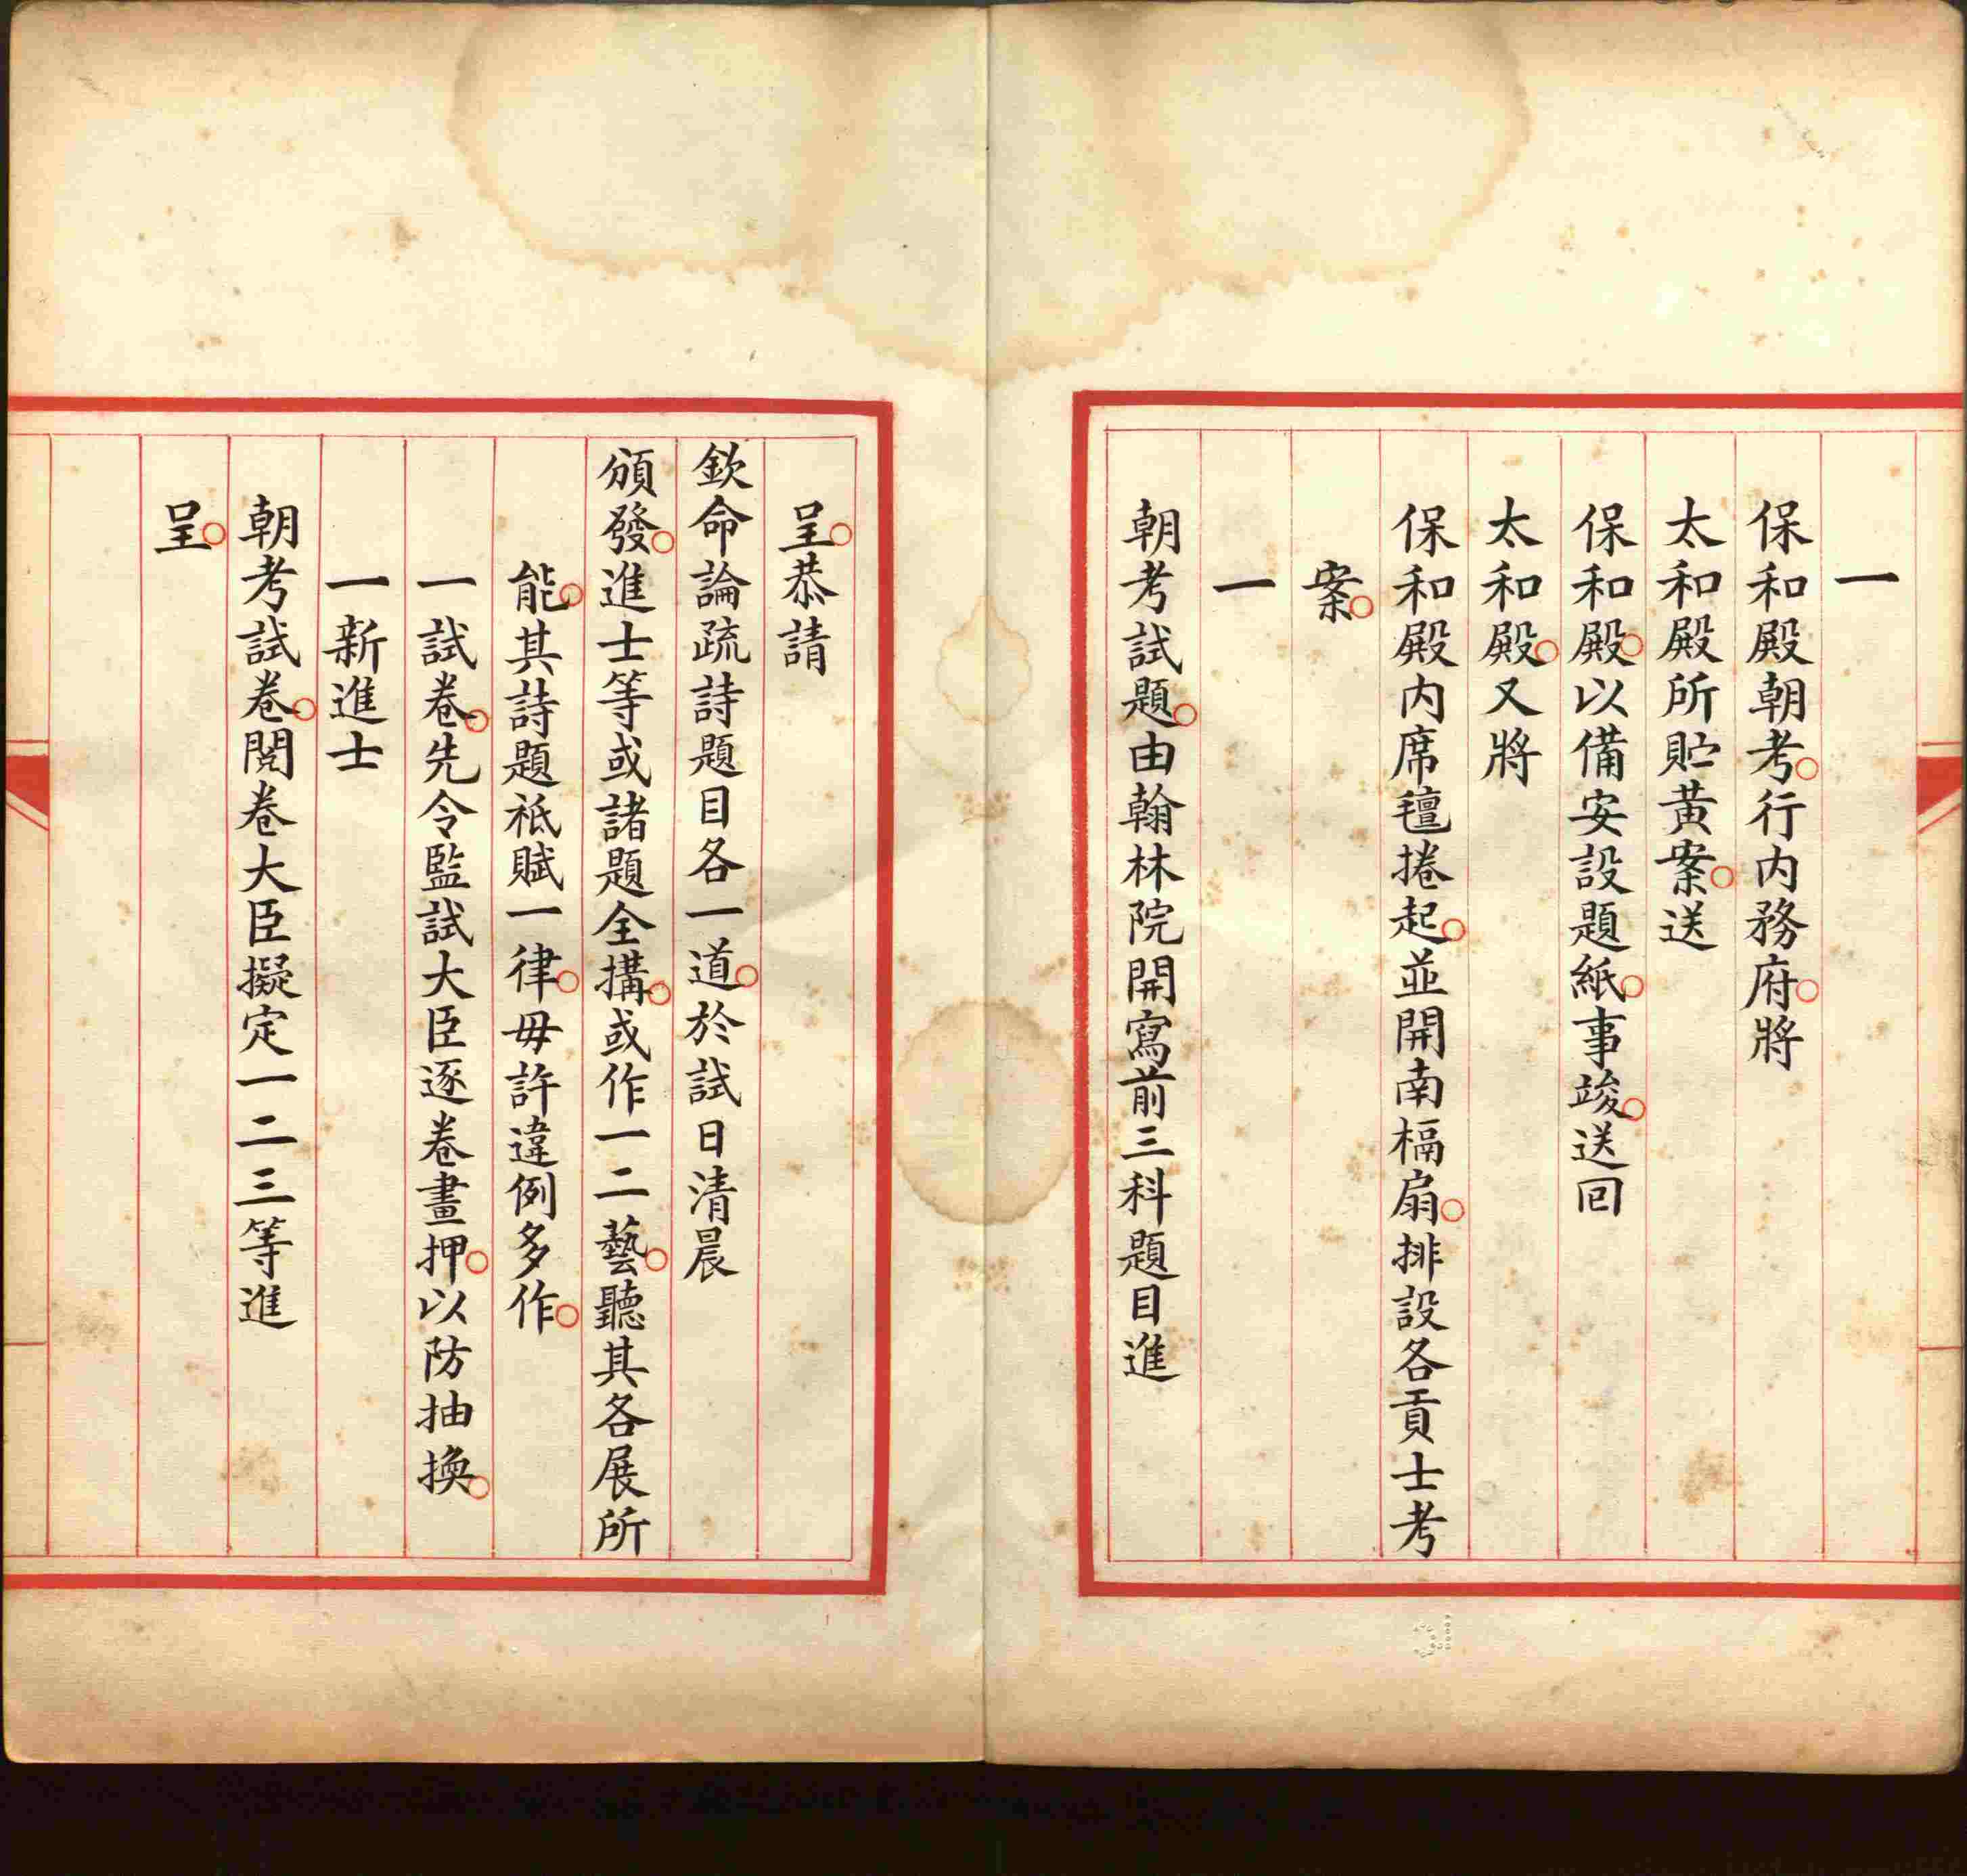 一
保和殿朝考。行内務府。將
太和殿所貯黃案。送
保和殿。以備安設題紙。事竣。送回
太和殿。又將
保和殿内席氊捲起。並開南槅扇。排設各貢士考
案。
一
朝考試題。由翰林院開寫前三科題目進
呈。恭請
欽命論疏詩題目各一道。於試日清晨
頒發。進士等或諸題全搆。或作一二藝。聽其各展所
能。其詩題祗賦一律。毋許違例多作。
一試卷。先令監試大臣逐卷畫押。以防抽換。
一新進士
朝考試卷。閱卷大臣擬定一二三等進
呈。